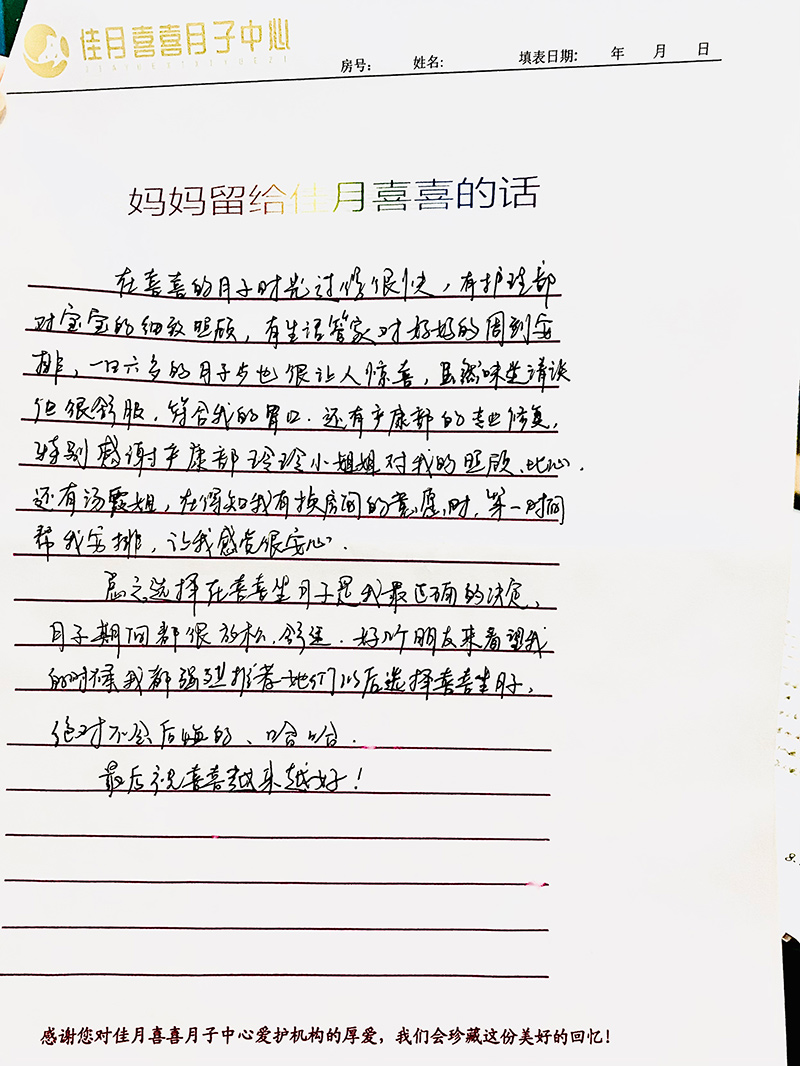 佳月喜喜月子中心
房号： 姓名: 填表日期: 年 月 日
妈妈留给佳月喜喜的话
在喜喜的月子时光过得很快，有护理部
对宝宝的细致照顾，有生活管家对妈妈的周到安
排，一日六多的月子歺也很让人惊喜，虽然味些清淡
但很舒服，符合我的胃口．还有产康部的专业修复，
特别感谢产康部玲玲小姐姐对我的照顾、比心．
还有汤霞姐，在得知我有换房间的意愿时，第一时间
帮我安排，让我感觉很安心．
总之选择在喜喜坐月子是我最正确的决定，
月子期间都很放松、舒适．好所朋友来看望我
的时候我都强烈推荐她们以后选择喜喜坐月子，
绝对不会后悔的、哈哈．
最后祝喜喜越来越好！
感谢您对佳月喜喜月子中心爱护机构的厚爱，我们会珍藏这份美好的回忆！